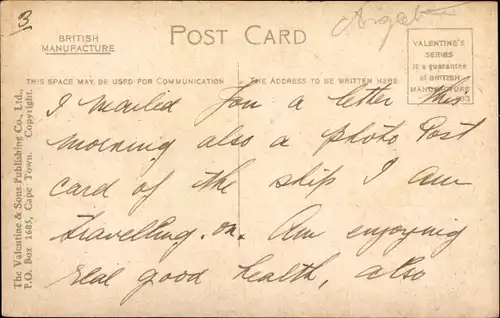 3
BRITISH
MANUFACTURE
POST CARD
VALENTINE'S
SERIES
is a guarantee
of BRITISH
MANUFACTURE
THIS SPACE MAY BE USED FOR COMMUNICATION
THE ADDRESS TO BE WRITTEN HERE
The Valentine & Sons Publishing Co., Ltd.,
P.O. Box 1685, Cape Town. Copyright.
I mailed you a letter this
morning also a photo Post
card of the ship I am
travelling. on. Am enjoying
real good health, also